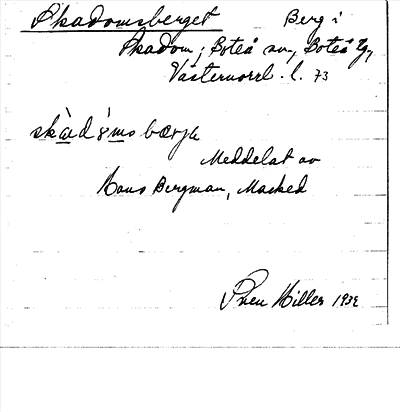 Skadomsberget Berg i
Skadom, Boteå sn, Boteå tg,
Västernorrl. l. 73
skàdómsbærjə
Meddelat av
Hans Bergman, Macked
Sven Hiller 1932